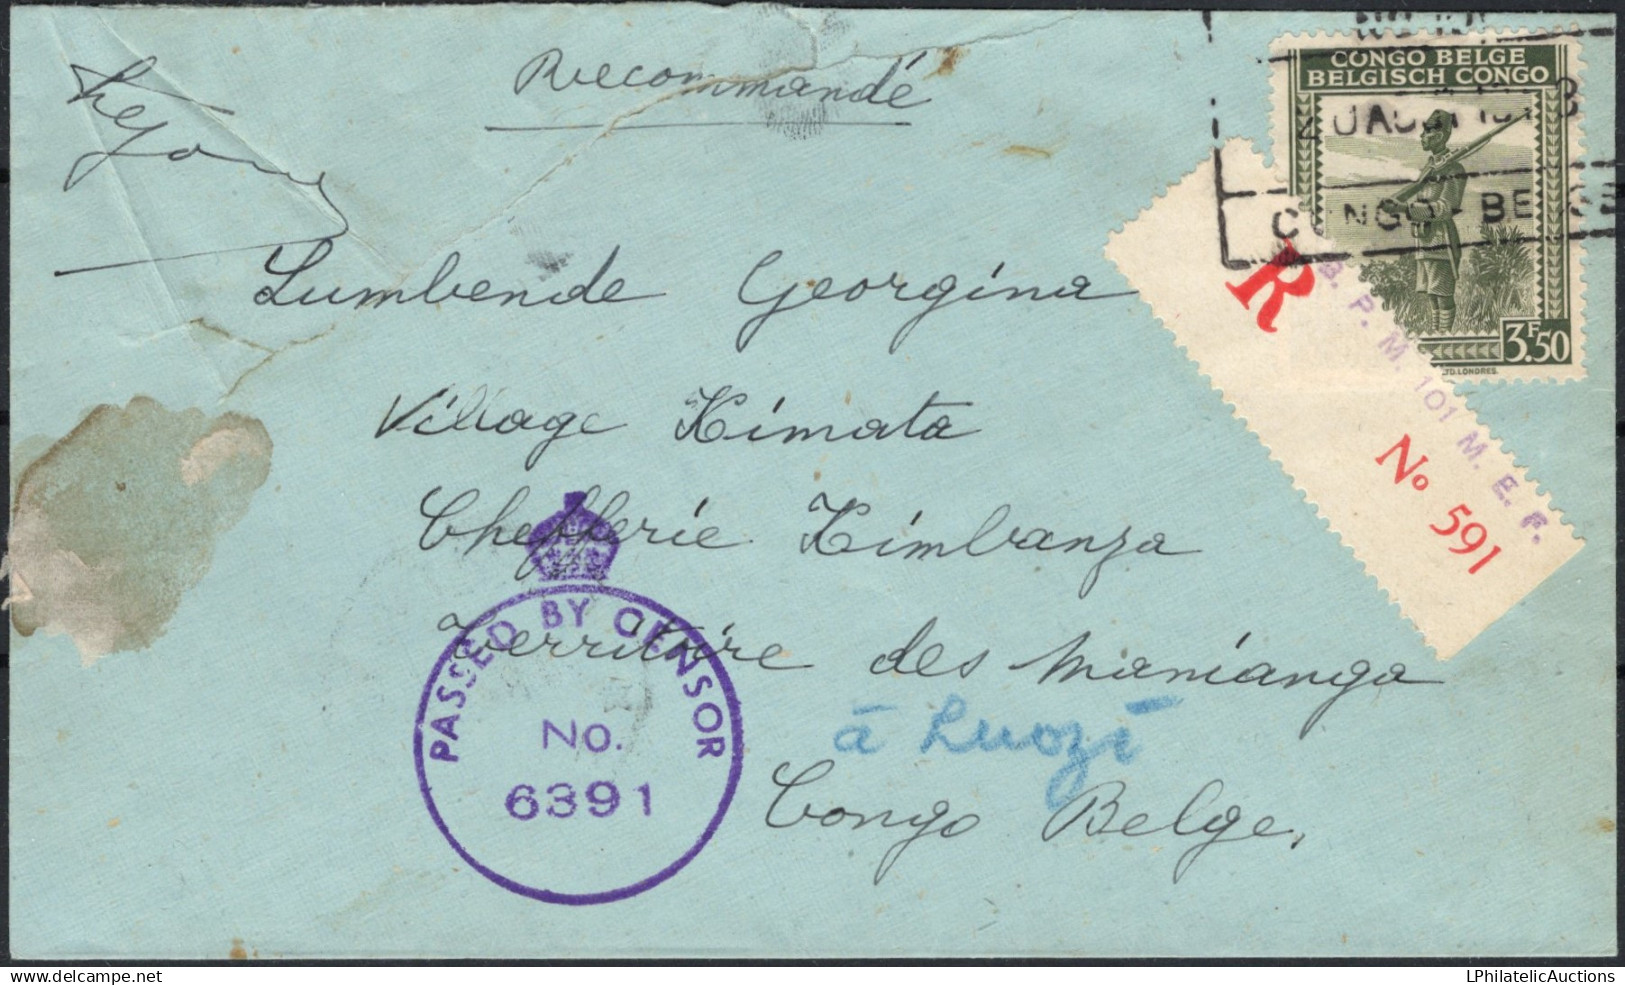 Recommandé
CONGO BELGE
BELGISCH CONGO
CONGO-BELGE
3F.50
LTD.LONDRES.
R
B. P. M. 101 M. E. F.
No 591
Lumbende Georgina
Village Kimata
Chefferie Kimbanza
Territoire des Manianga
à Luozi
Congo Belge,
PASSED BY CENSOR
No.
6391
www.delcampe.net
LPhilatelicAuctions